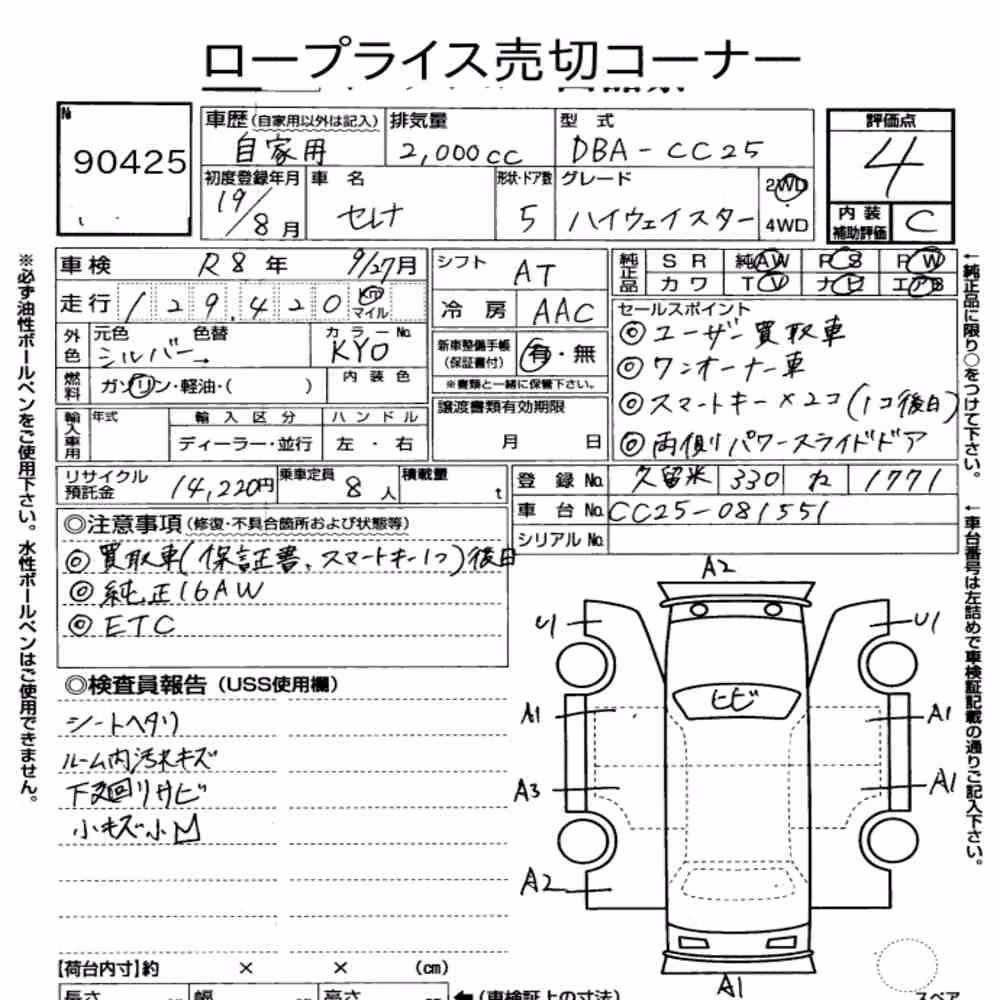 ロープライス売切コーナー
№ 90425
車歴 (自家用以外は記入) 自家用
排気量 2,000cc
型式 DBA-CC25
評価点 4
初度登録年月 19/8月
車名 セレナ
形状・ドア数 5
グレード ハイウェイスター
2WD
4WD
内装補助評価 C
車検 R8年 9/27月
シフト AT
純正品 SR 純AW PS PW
カワ TV ナビ エアB
走行 129,420 km マイル
冷房 AAC
外色 元色 シルバー 色替 カラーNo. KY0
新車整備手帳(保証書付) 有・無
※書類と一緒に保管下さい。
燃料 ガソリン・軽油・( )
内装色
セールスポイント
◎ユーザー買取車
◎ワンオーナー車
◎スマートキー×2コ(1コ後日)
◎両側パワースライドドア
輸入車用 年式 輸入区分 ディーラー・並行 ハンドル 左・右
譲渡書類有効期限 月 日
リサイクル預託金 14,220円
乗車定員 8人
積載量 t
登録No. 久留米 330 ね 1771
車台No. CC25-081551
シリアルNo.
◎注意事項(修復・不具合箇所および状態等)
◎買取車(保証書、スマートキー1コ)後日
◎純正16AW
◎ETC
◎検査員報告(USS使用欄)
シートヘタリ
ルーム内汚れキズ
下廻りサビ
小キズ小凹
A2
U1 U1
ヒビ
A1 A1
A3 A1
A2
A1
【荷台内寸】約 × × (cm)
長さ 幅 高さ
(車検証上の寸法)
スペア
※必ず油性ボールペンをご使用下さい。水性ボールペンはご使用できません。
←純正品に限り○をつけて下さい。
←車台番号は左詰めで車検証記載の通りご記入下さい。